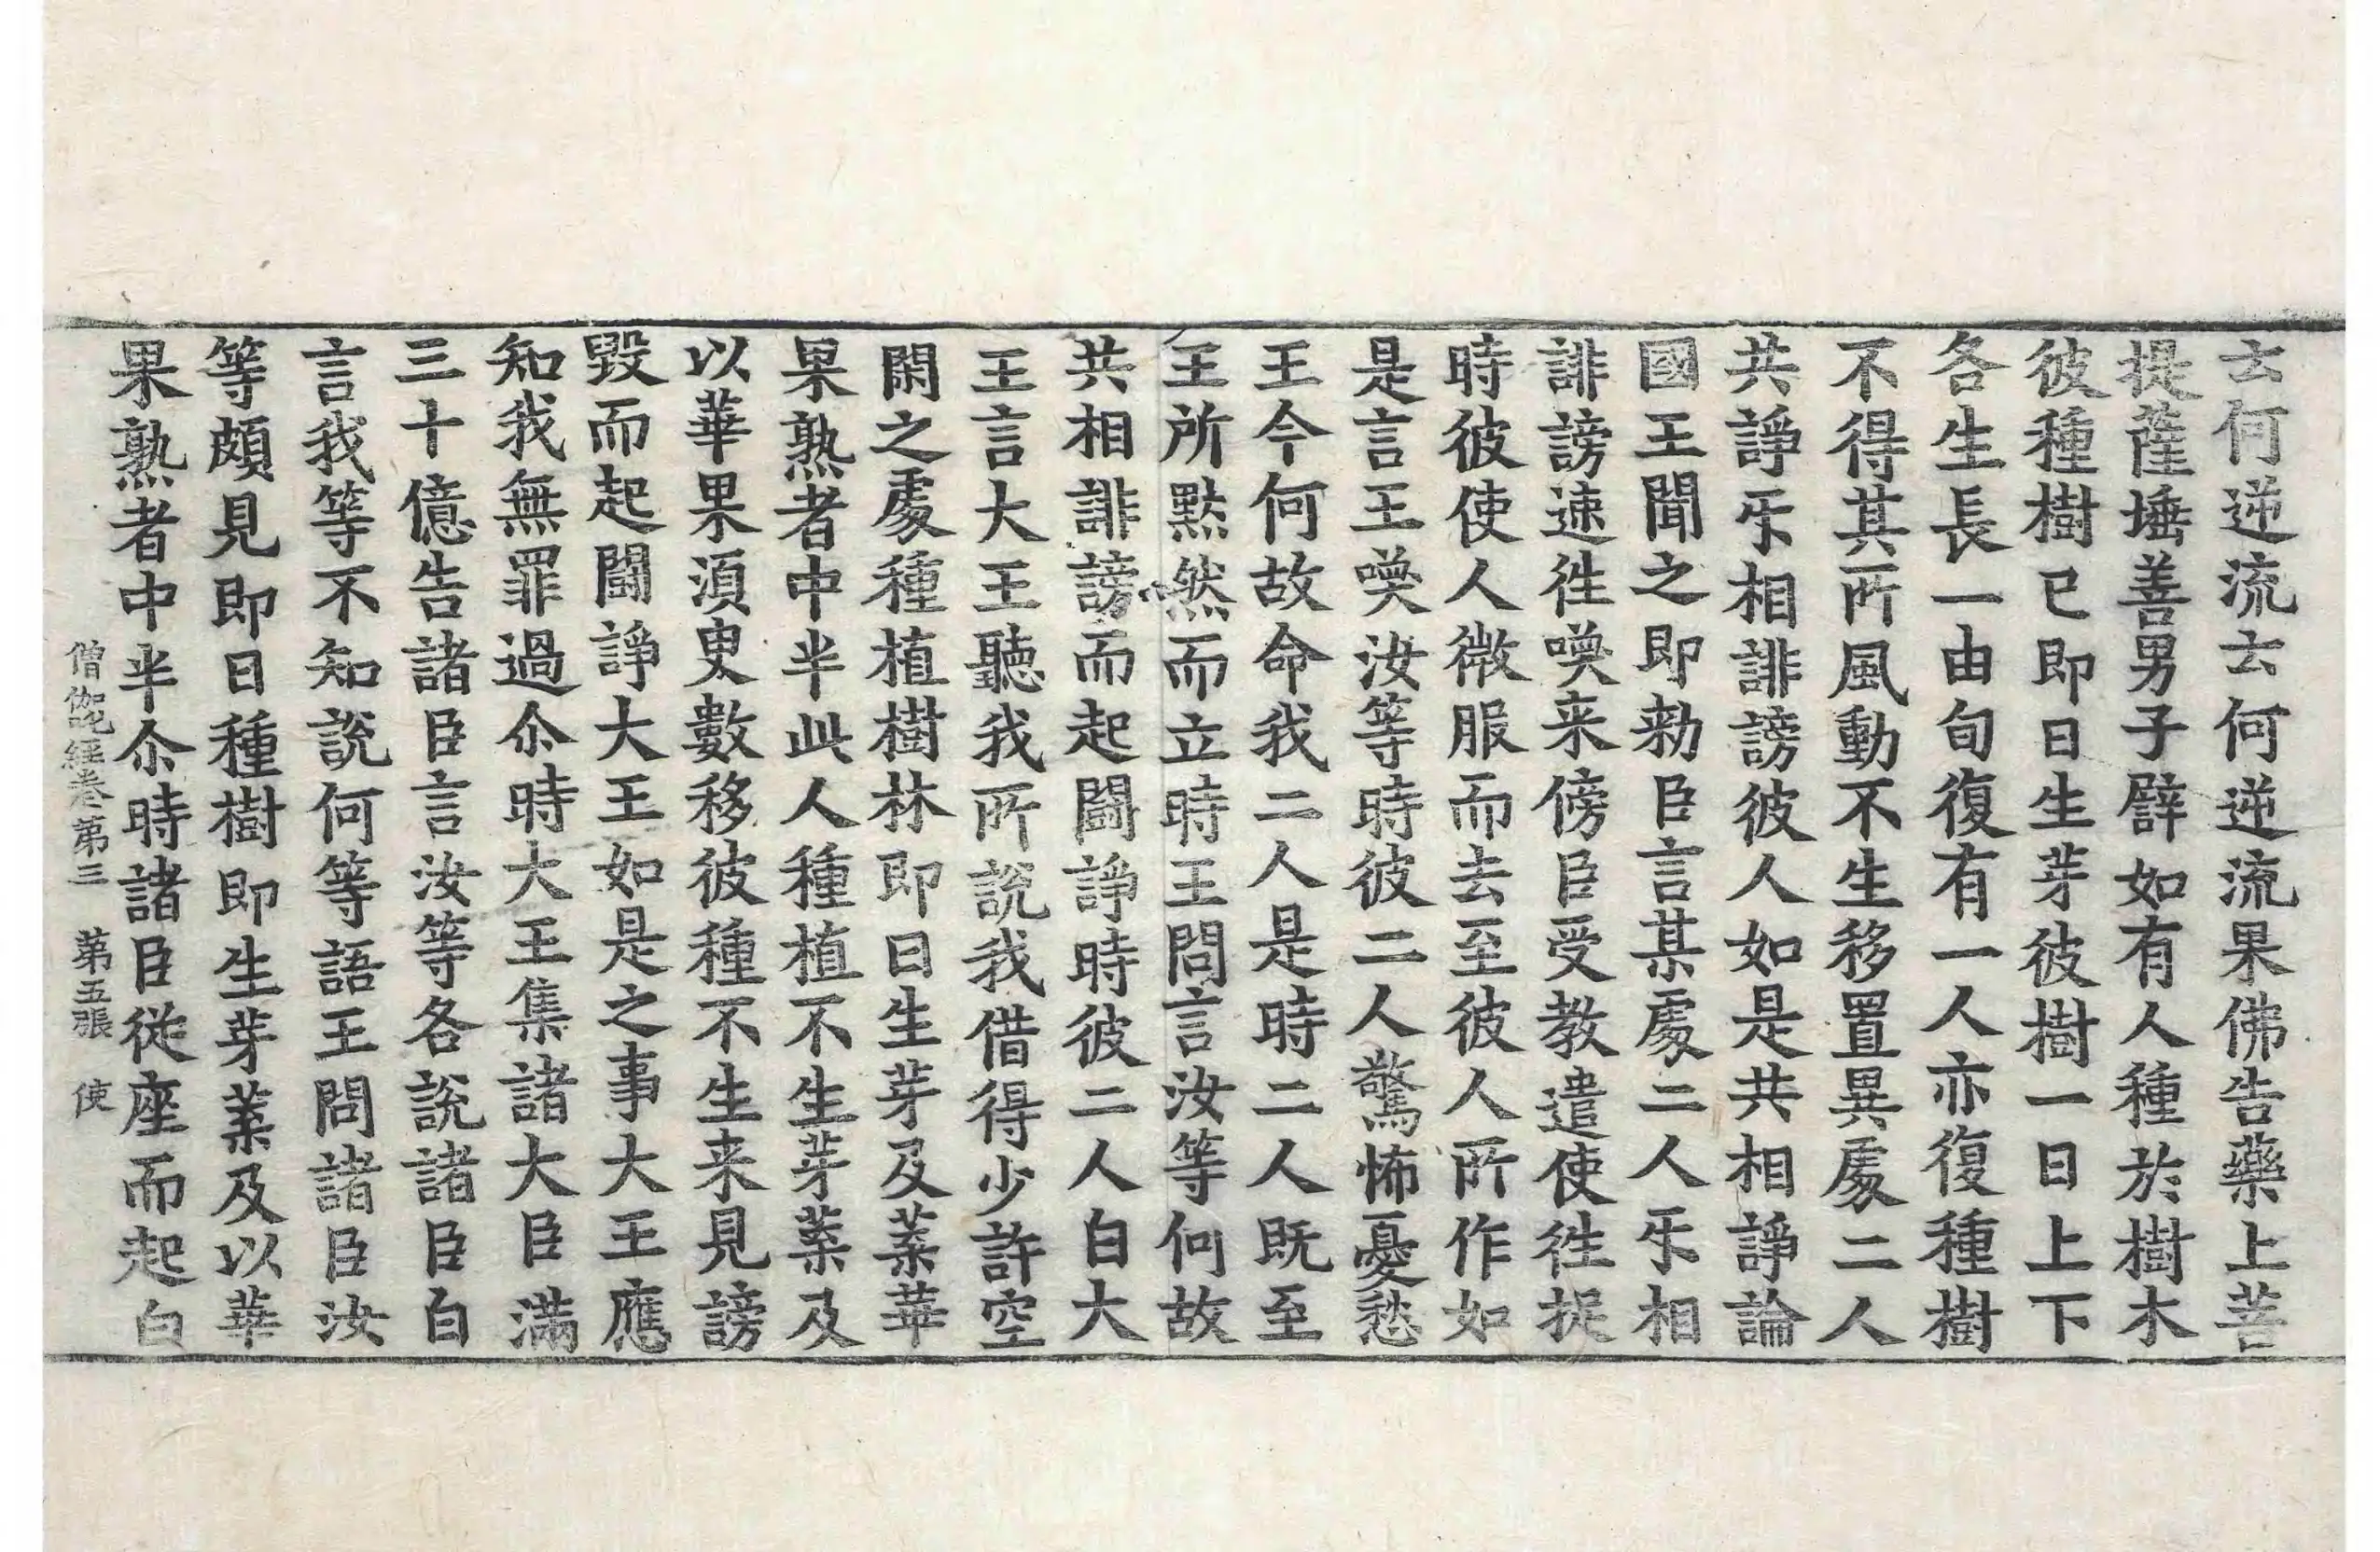 去何逆流去何逆流果佛告藥上菩
提薩埵善男子譬如有人種於樹木
彼種樹已即日生芽彼樹一日上下
各生長一由旬復有一人亦復種樹
不得其所風動不生移置異處二人
共諍㸦相誹謗彼人如是共相諍論
國王聞之即勑臣言某處二人㸦相
誹謗速徃喚来傍臣受教遣使徃捉
時彼使人微服而去至彼人所作如
是言王喚汝等時彼二人驚怖憂愁
王今何故命我二人是時二人既至
王所黙然而立時王問言汝等何故
共相誹謗而起鬪諍時彼二人白大
王言大王聽我所說我借得少許空
閑之處種植樹林即日生芽及葉華
果熟者中半此人種植不生芽葉及
以華果須臾數移彼種不生来見謗
毀而起鬪諍大王如是之事大王應
知我無罪過尒時大王集諸大臣滿
三十億告諸臣言汝等各說諸臣白
言我等不知說何等語王問諸臣汝
等頗見即日種樹即生芽葉及以華
果熟者中半尒時諸臣從座而起白
僧伽吒經卷第三 第五張 使